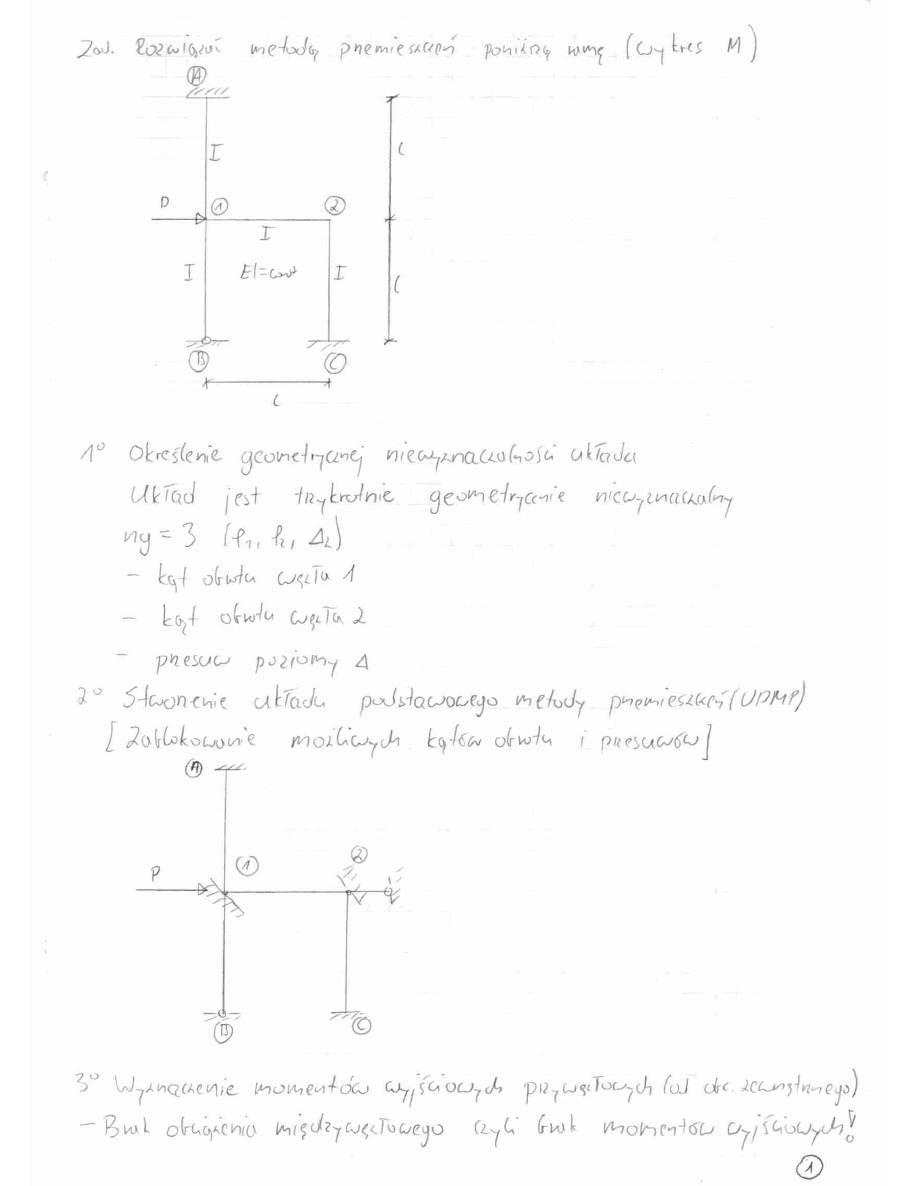 Zad. Rozwiązać metodą przemieszczeń poniższą ramę (wykres M)
A
I
l
P
1
2
I
I
EI=const
I
l
B
C
l
1° Określenie geometrycznej niewyznaczalności układu
Układ jest trzykrotnie geometrycznie niewyznaczalny
ng = 3 (φ1, φ2, Δ2)
- kąt obrotu węzła 1
- kąt obrotu węzła 2
- przesuw poziomy Δ
2° Stworzenie układu podstawowego metody przemieszczeń (UPMP)
[Zablokowanie możliwych kątów obrotu i przesuwów]
A
P
1
2
B
C
3° Wyznaczenie momentów wyjściowych przywęzłowych (od obc. zewnętrznego)
- Brak obciążenia międzywęzłowego czyli brak momentów wyjściowych!
1